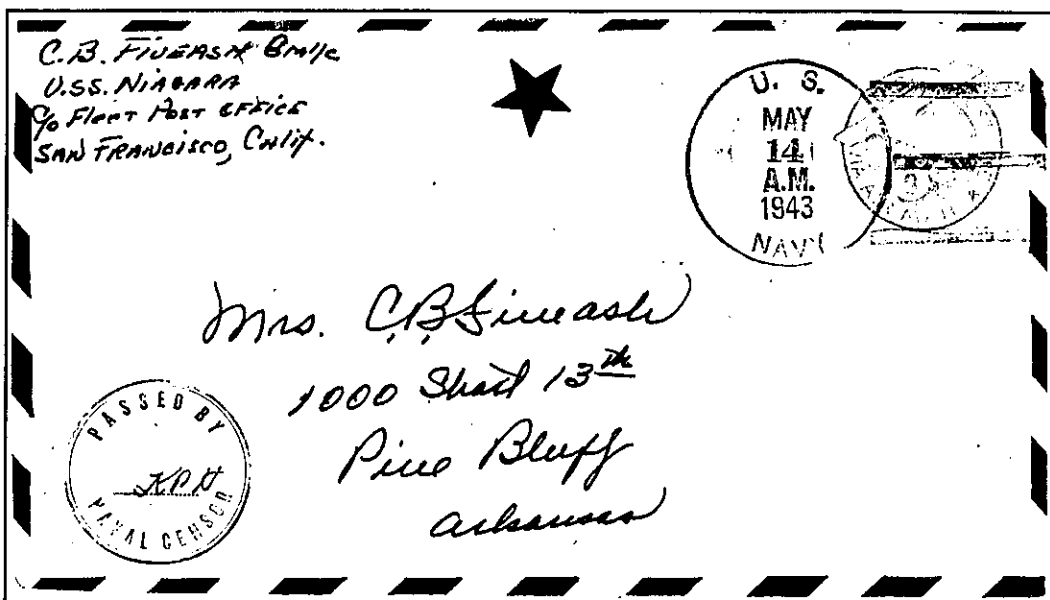 C.B. FIVEASH BM1/c
U.S.S. NIAGARA
c/o Fleet Post Office
SAN FRANCISCO, Calif.
U. S.
MAY
14
A.M.
1943
NAVY
Mrs. C.B. Fiveash
1000 13th
Pine Bluff
Arkansas
PASSED BY
NAVAL CENSOR